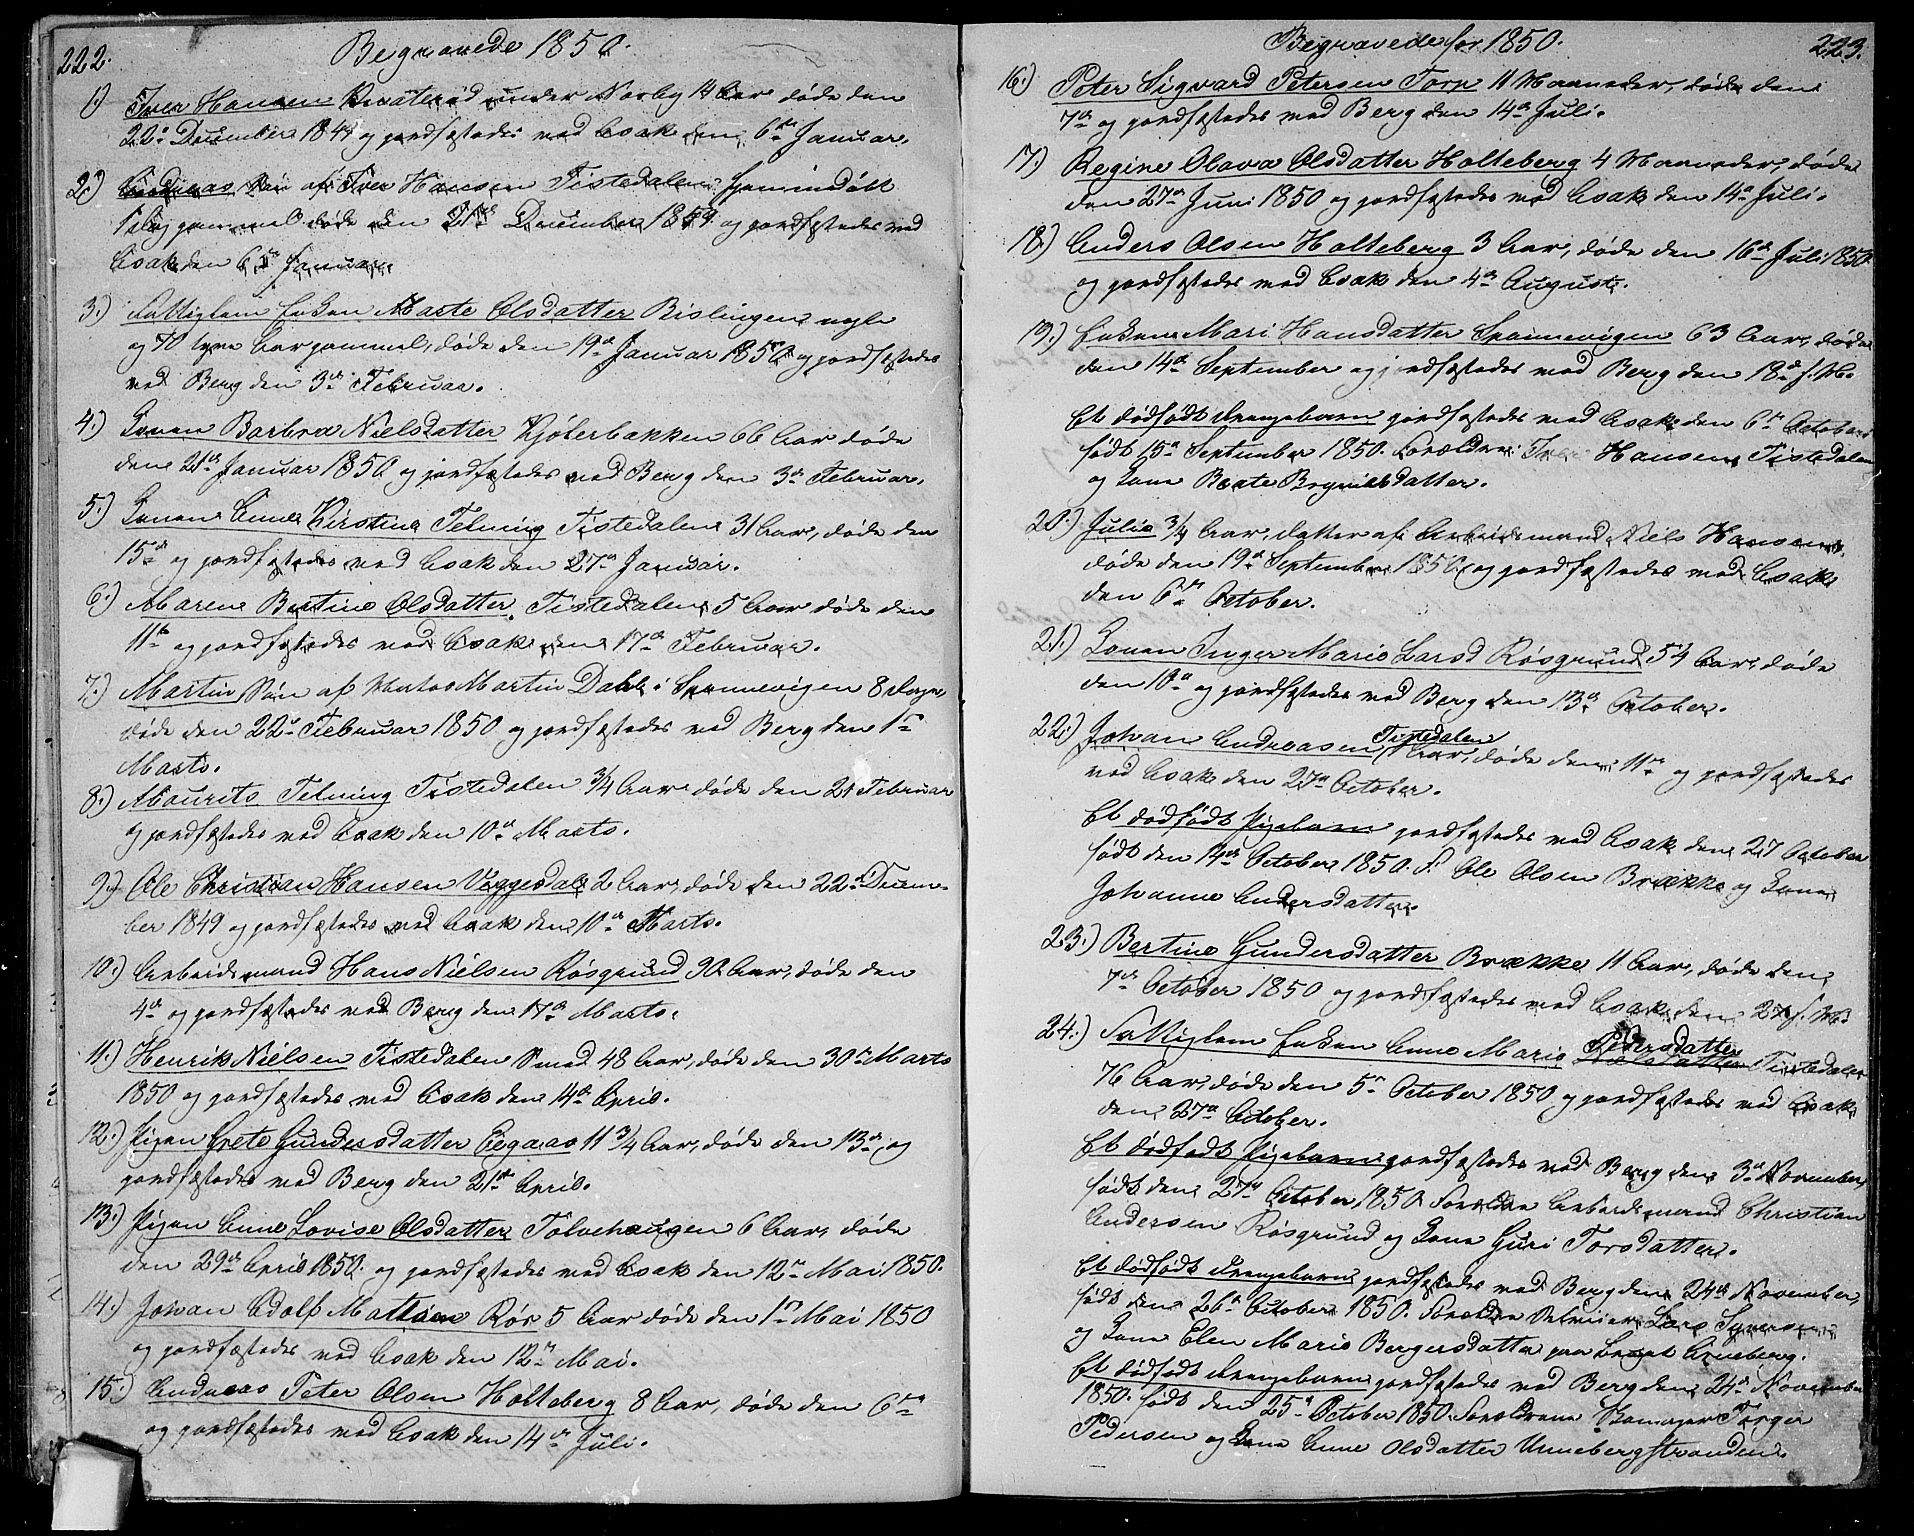 222.
Begravede 1850.
1.) Iver Hansen under Norby 14 Aar døde den
22de December 1849 og jordfæstedes ved Asak den 6te Januar.
2.) Andreas Søn af Iver Hansen Tistedalen hjemmedøbt
1 Dag gammel døde den 21de December 1849 og jordfæstedes ved
Asak den 6te Januar.
3.) Fattiglem Enken Marte Olsdatter Bislingen nogle
og 70 Aar gammel, døde den 19de Januar 1850 og jordfæstedes
ved Berg den 3de Februar.
4.) Konen Barbra Nielsdatter Kjølerbakken 66 Aar døde
den 21de Januar 1850 og jordfæstedes ved Berg den 3de Februar.
5.) Konen Anne Kirstine Telning Tistedalen 31 Aar, døde den
15de og jordfæstedes ved Asak den 27de Januar.
6.) Maren Bertine Olsdatter Tistedalen 5 Aar døde den
11te og jordfæstedes ved Asak den 17de Februar.
7.) Martin Søn af Martin Dahl i Sponnevigen 8 Dage,
døde den 22de Februar 1850 og jordfæstedes ved Berg den 1te
Marts.
8.) Maurits Telning Tistedalen 3/4 Aar døde den 21 Februar
og jordfæstedes ved Asak den 10de Marts.
9.) Ole Christian Hansen Veggesdal 2 Aar, døde den 22de Decem-
ber 1849 og jordfæstedes ved Asak den 10de Marts.
10.) Arbeidsmand Hans Nielsen Røsgrund 90 Aar, døde den
4de og jordfæstedes ved Berg den 17de Marts.
11.) Henrik Nielsen Tistedalen Smed 48 Aar, døde den 30te Marts
1850 og jordfæstedes ved Asak den 14de April.
12.) Pigen Grete Gundersdatter Eegaas 11 3/4 Aar, døde den 13de og
jordfæstedes ved Berg den 21de April.
13.) Pigen Anne Lovise Olsdatter Tolvehaugen 6 Aar, døde
den 29de April 1850. og jordfæstedes ved Asak den 12te Mai 1850.
14.) Johan Adolf Røs 5 Aar døde den 1te Mai 1850
og jordfæstedes ved Asak den 12te Mai.
15.) Andreas Peter Olsen Holteberg 8 Aar, døde den 6te
og jordfæstedes ved Asak den 14de Juli.
Begravede for 1850.
223.
16.) Peter Sigvard Petersen Torp 11 Maaneder, døde den
7de og jordfæstedes ved Berg den 14de Juli.
17.) Regine Olava Olsdatter Holteberg 4 Maaneder, døde
den 27de Juni 1850 og jordfæstedes ved Asak den 14de Juli.
18.) Anders Olsen Holteberg 3 Aar, døde den 16de Juli 1850
og jordfæstedes ved Asak den 4de August.
19.) Enken Mari Hansdatter Sponnevigen 63 Aar, døde
den 14de September og jordfæstedes ved Berg den 18de s. M.
Et dødfødt Drengebarn jordfæstedes ved Asak den 6te October
født 15de September 1850. Forældre: Iver Hansen Tistedalen
og Kone Beate
20.) Julie 3/4 Aar, datter af Arbeidsmand Niels Hansen,
døde den 19de September 1850 og jordfæstedes ved Asak
den 6te October.
21.) Konen Inger Marie Larsd Røsgrund 54 Aar, døde
den 10de og jordfæstedes ved Berg den 13de October.
22.) Johan Andreasen Tistedalen 1 Aar, døde den 11te og jordfæstedes
ved Asak den 27de October.
Et dødfødt Pigebarn jordfæstedes ved Asak den 27 October
født den 14de October 1850. F. Ole Olsen Brække og Kone
Johanne Andersdatter.
23.) Bertine Gundersdatter Brække 11 Aar, døde den
7de October 1850 og jordfæstedes ved Asak den 27 s. M.
24.) Fattiglem Enken Anne Marie Pedersdatter Tistedalen
76 Aar, døde den 5te October 1850 og jordfæstedes ved Asak
den 27de October.
Et dødfødt Pigebarn jordfæstedes ved Berg den 3de November,
født den 27de October 1850. Forældre Arbeidsmand Christian
Andersen Røsgrund og Kone Guri Torsdatter.
Et dødfødt Drengebarn jordfæstedes ved Berg den 24de November,
født den 26de October 1850. Forældre Lars Syversen
og Kone Elen Marie Bergersdatter paa Arneberg.
Et dødfødt Drengebarn jordfæstedes ved Berg den 24de November
1850. født den 25de October 1850. Forældrene Skomager Torger
Pedersen og Kone Anne Olsdatter Unnebergstranden.